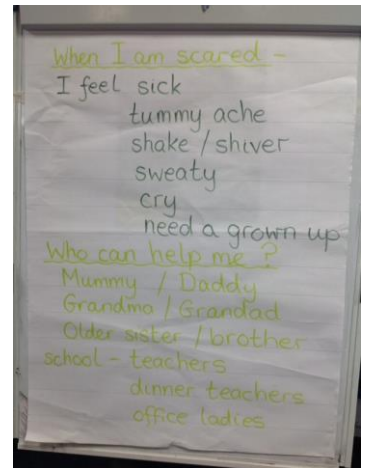 When I am scared -
I feel sick
tummy ache
shake / shiver
sweaty
cry
need a grown up
Who can help me?
Mummy / Daddy
Grandma / Grandad
Older sister / brother
school - teachers
dinner teachers
office ladies